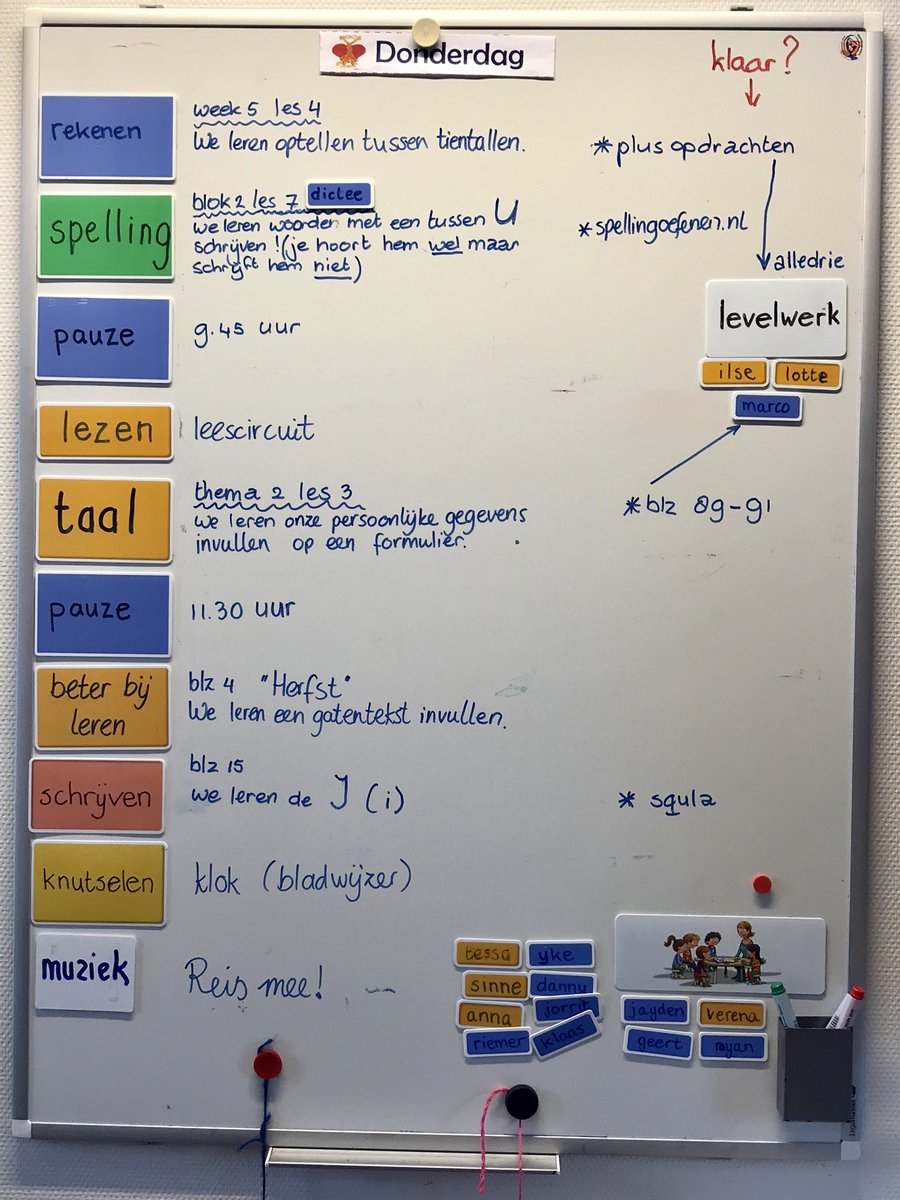 Donderdag
klaar?
rekenen
week 5 les 4
We leren optellen tussen tientallen.
* plus opdrachten
spelling
blok 2 les 7 dictee
we leren woorden met een tussen U
schrijven! (je hoort hem wel maar
schrijft hem niet)
* spellingoefenen.nl
alledrie
levelwerk
ilse lotte
marco
pauze
9.45 uur
lezen
leescircuit
taal
thema 2 les 3
we leren onze persoonlijke gegevens
invullen op een formulier.
* blz 89-91
pauze
11.30 uur
beter bij
leren
blz 4 "Herfst"
We leren een gatentekst invullen.
schrijven
blz 15
we leren de J (i)
* squla
knutselen
klok (bladwijzer)
muziek
Reis mee!
tessa ijke
sinne danny
anna jorrit
riemer klaas
jayden verena
geert ryan